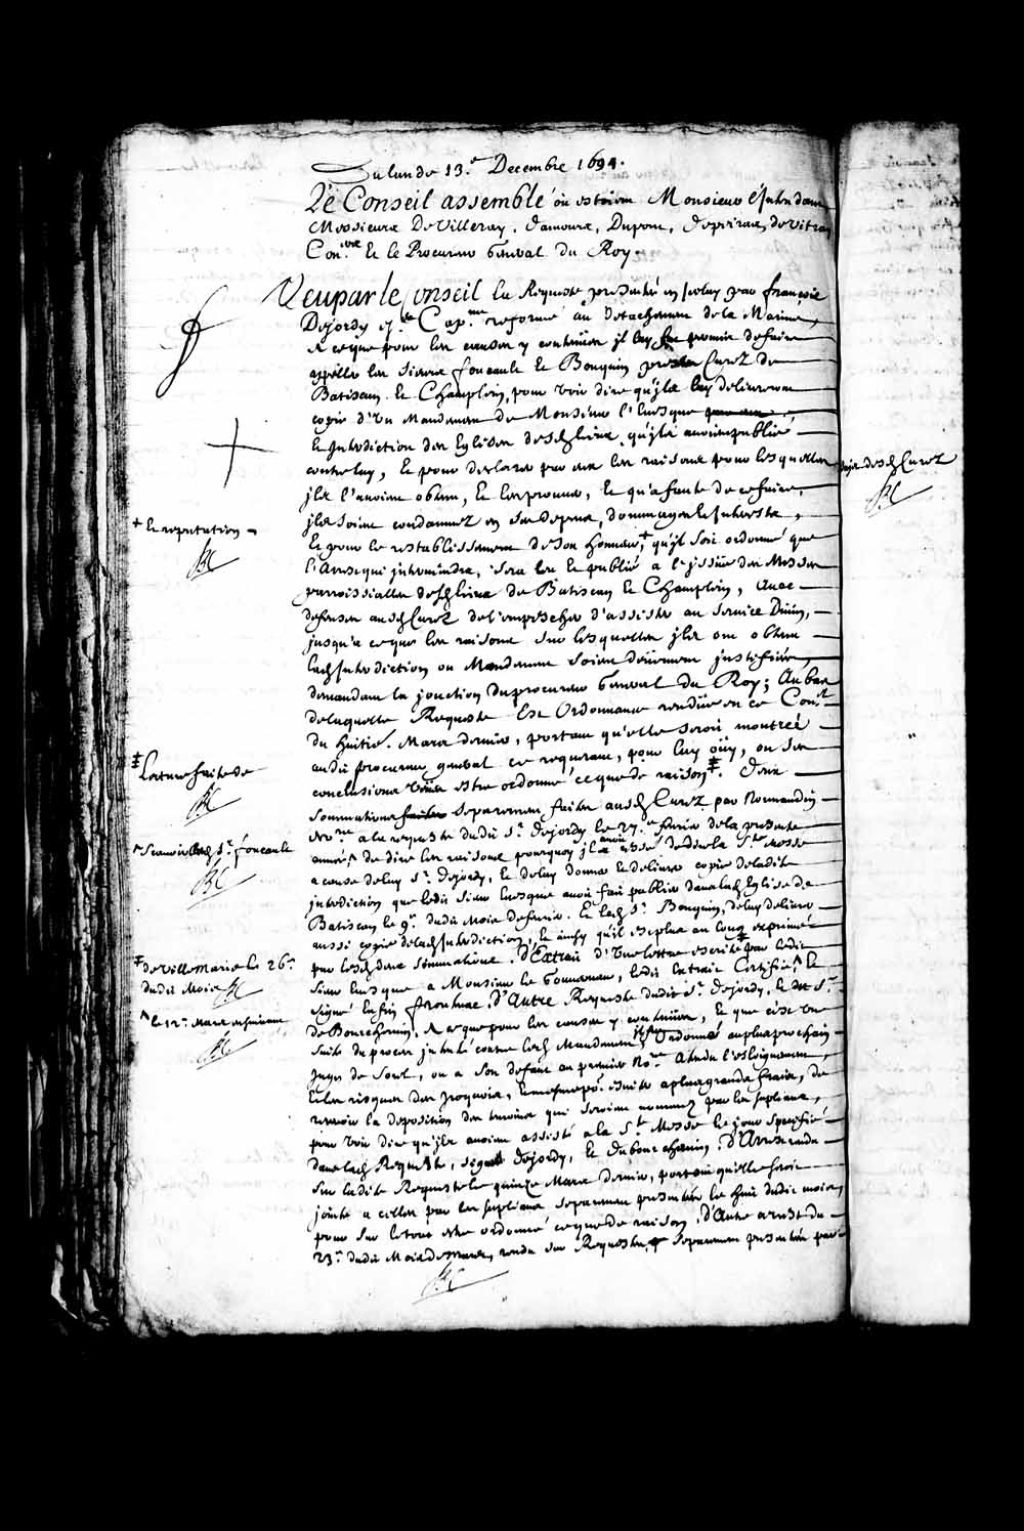 Du lundy 13.e Decembre 1694.
Le Conseil assemblé où estoient Monsieur l'Intendant
Messieurs De Villeray, Damours, Dupont, Depeiras, de Vitray
Con.ers Et le Procureur General du Roy.
Veu par le Conseil la Requeste presentée en iceluy par françois
Desjordy Cap.ne reformé au détachement de la Marine,
A ce que pour les causes y contenües il luy fut permis de faire
appeller les Sieurs foucault Et Bouquin Curez de
Batiscan Et Champlain, pour voir dire qu'ils luy delivreront
copie d'Un Mandement de Monsieur l'Evesque
Et Interdiction des Eglises desd. lieux, qu'ils avoient publié
contre luy, Et pour declarer par eux les raisons pour lesquelles
ils l'avoient obtenu, Et les prouver, Et qu'a faute de ce faire,
ils soient condamnez en Ses depens, dommages Et Interests,
Et pour le restablissement de son honneur,+ qu'il soit ordonné que
l'Arrest qui interviendra, sera leu Et publié a l'issüe des Messes
parroissialles desd. lieux de Batiscan Et Champlain, Avec
defenses ausd. Curez de l'empescher d'assister au Service Divin,
jusqu'a ce que les raisons sur lesquelles ils ont obtenu
lad. Interdiction ou Mandement soient deüement justifiées,
demandant la jonction du procureur General du Roy; Au bas
de laquelle Requeste Est Ordonnance rendüe en ce Con.el
du huitie. Mars dernier, portant qu'elle seroit montrée
audit procureur general ce requerant, pour luy oüy, ou Ses
conclusions veües estre ordonné ce que de raison‡. Deux
Sommations separement faites ausd. Curez par Normandin
No.re a la requeste dudit S.r Desjordy le 27.e fevrier de la presente
année^ de dire les raisons pourquoy il avoit cessé de dire la S.te Messe
a cause de luy S.r Desjordy, Et de luy donner Et delivrer copie de ladite
interdiction que ledit Sieur Evesque avoit fait publier dans lad. Eglise de
Batiscan le 9.e dudit Mois de fevrier. Et led. S.r Bouquin, de luy delivrer
aussi copie de lad. Interdiction, Et ainsy qu'il est plus au long exprimé
par lesd. deux sommations. D'Extrait d'Une lettre escrite‡ par ledit
Sieur Evesque a Monsieur le Gouverneur, ledit Extrait Certifié^ Et
signé Enfin frontenac. D'Autre Requeste dudit S.r Desjordy, Et du S.r
de Bourchemin, A ce que pour les causes y contenües, Et que c'est Une
suite du procez intenté contre lesd. Mandemens, Il fut Ordonné au plus prochain
Juge de Sorel, ou a Son defaut au premier No.re Attendu l'esloignement,
Et les risques des Iroquois, Et a plus grands fraix, de
recevoir la deposition des temoins qui seroient nommez par les supliants,
pour voir dire qu'ils avoient assisté a la S.te Messe le jour specifié
dans lad. Requeste, signé Desjordy, Et Dubourchemin; D'Arrest rendu
Sur ladite Requeste le quinze Mars dernier, portant qu'elle seroit
jointe a celles par les supliants separement presentées le huit dudit mois,
pour sur le tout estre ordonné ce que de raison. D'Autre arrest du
23.e dudit Mois de Mars, rendu sur Requestes separement presentées par
+ Et reputation
‡ Lecture faite de
^ Sçavoir aud. S.r foucault
‡ de Ville Marie le 26.e
dudit Mois
^ le 12.e Mars ensuivant,
desd. Curez